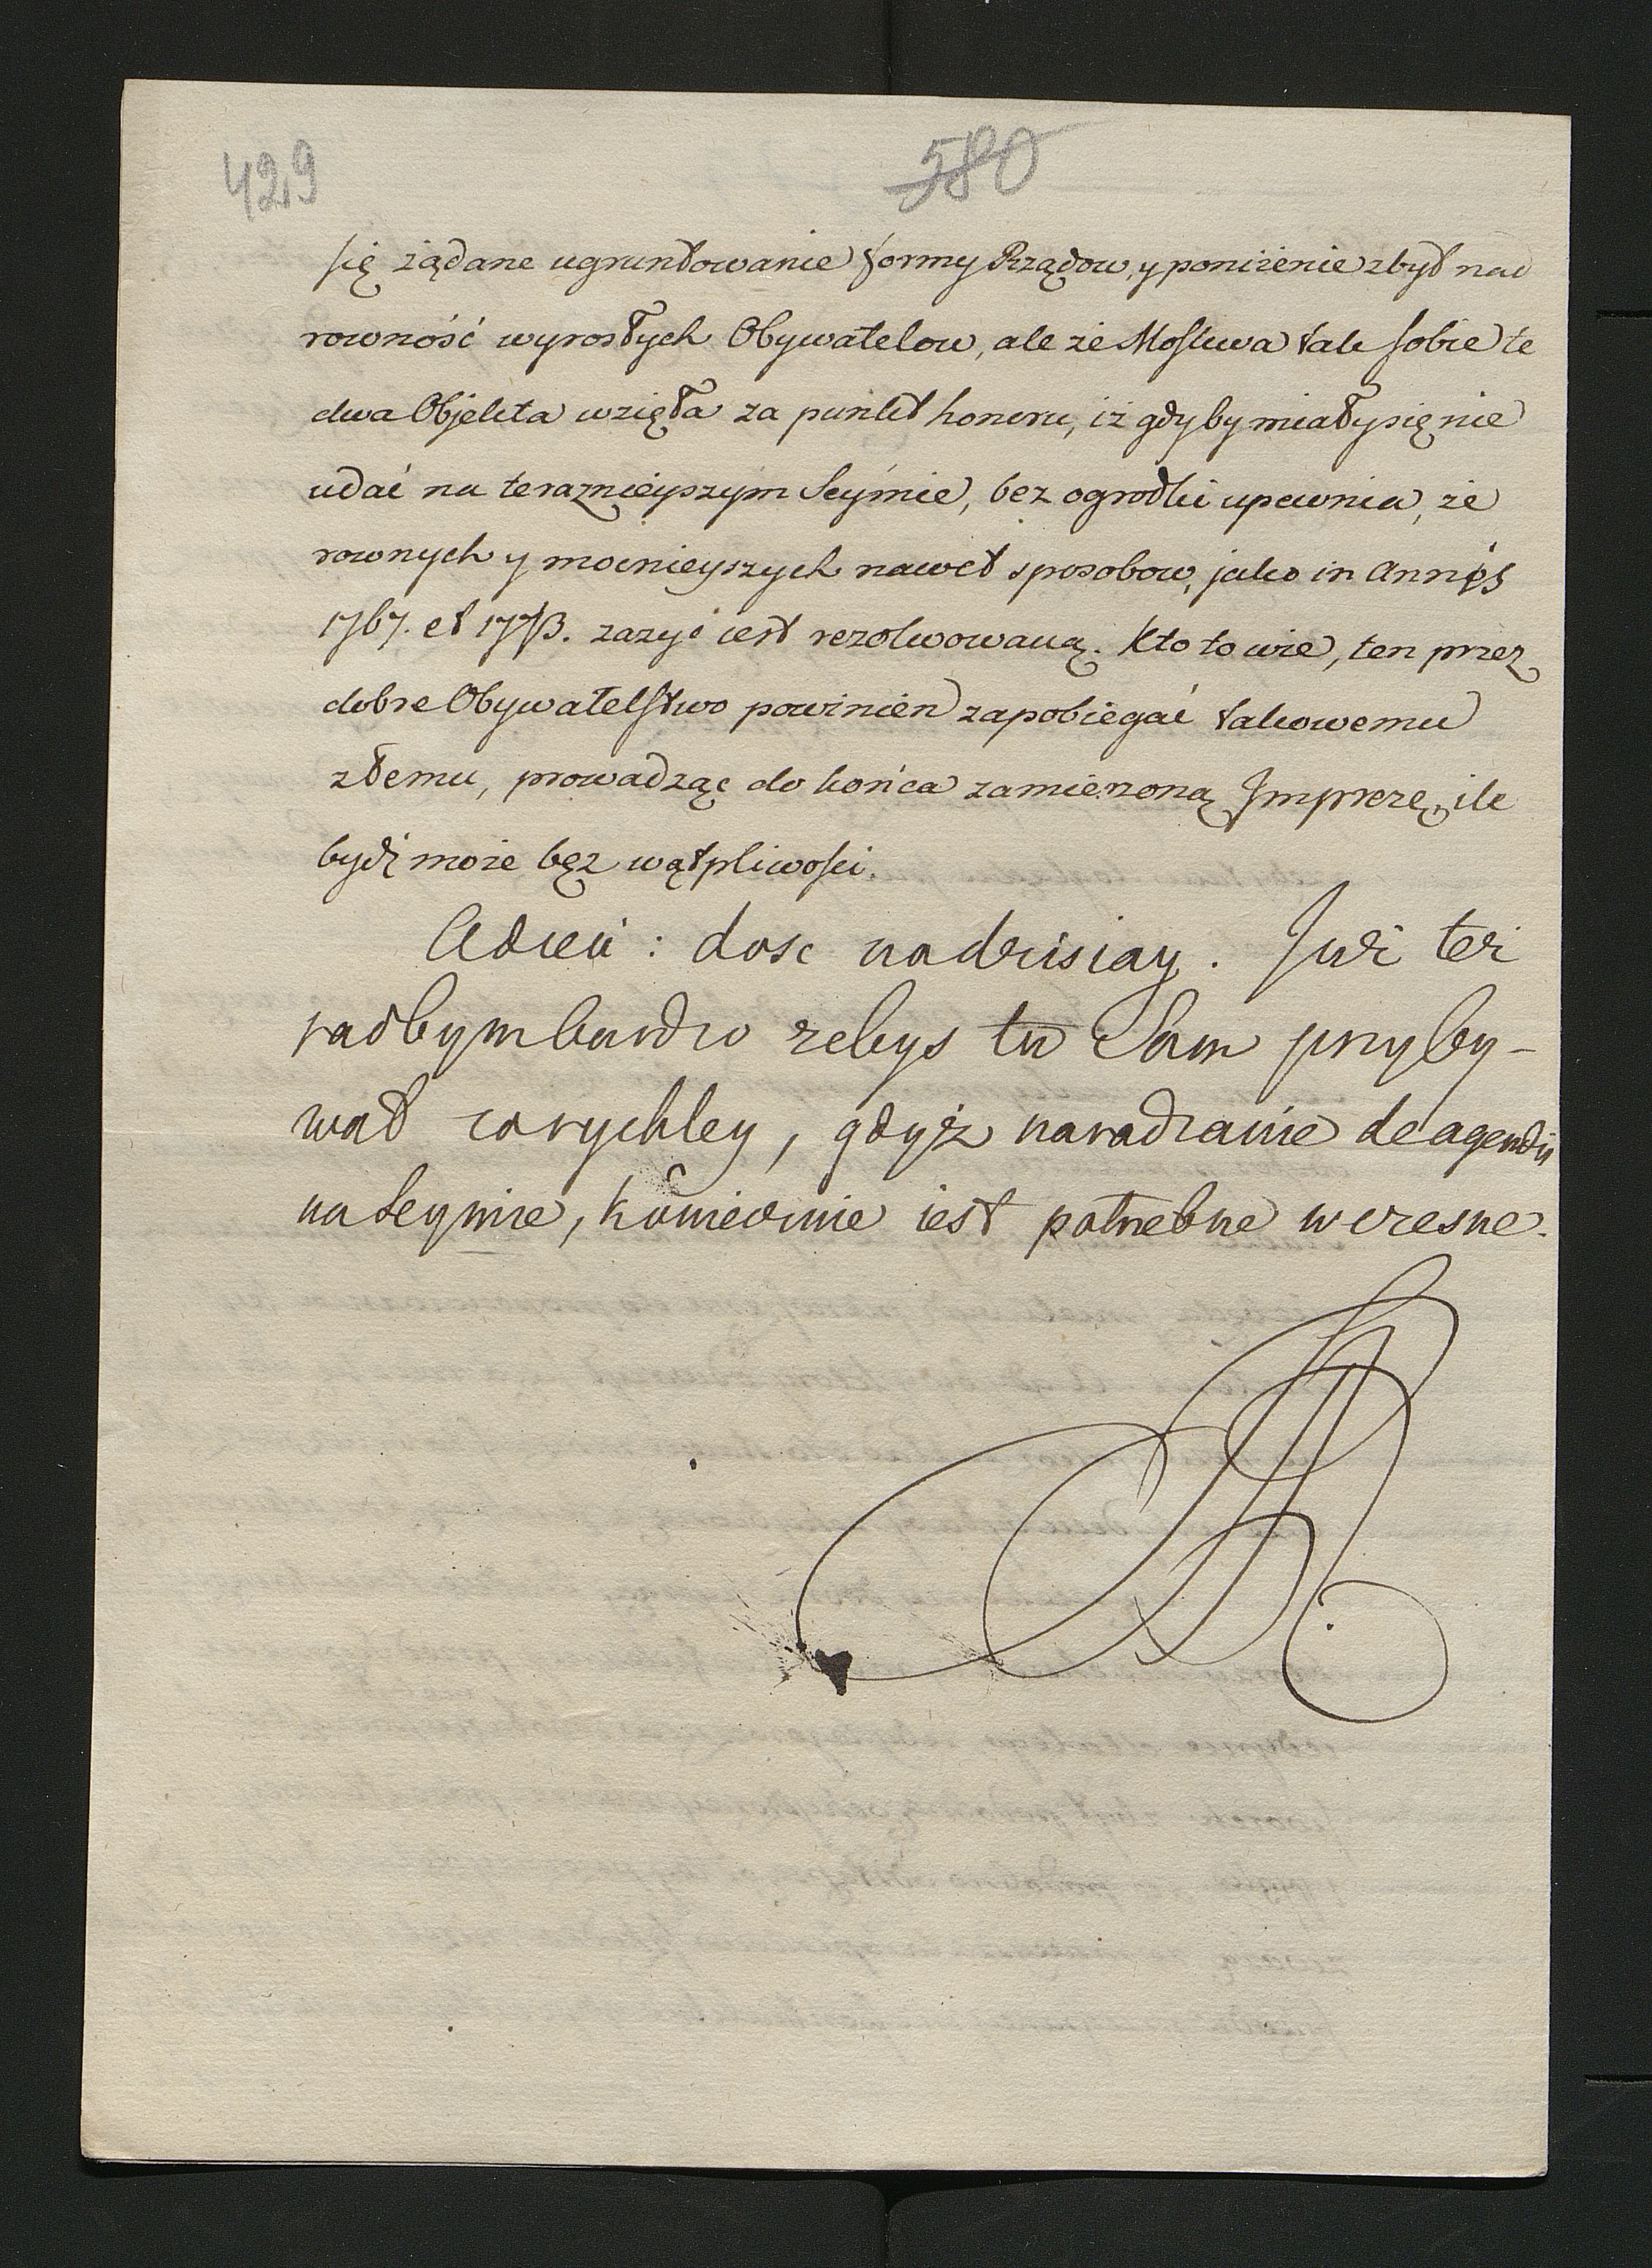 429
580
się żądane ugruntowanie formy Rządow, y poniżenie zbyt nad
rowność wyrosłych Obywatelow, ale że Moskwa tak sobie te
dwa Objekta wzięła za punkt honoru, iż gdyby miały się nie
udać na teraznieyszym Seymie, bez ogrodki upewnia, że
rownych y mocnieyszych nawet sposobow, jako in Annis
1767. et 1773. zazyć iest rezolwowaną. Kto to wie, ten przez
dobre Obywatelstwo powinien zapobiegać takowemu
złemu, prowadząc do końca zamierzoną Imprezę, ile
bydź może bez wątpliwości.
Adieu : dosc na dzisiay. Juz tez
radbym bardzo zebys tu Sam przyby-
wał corychley, gdyż naradzanie de agendis
na Seymie, koniecznie iest potrzebne wczesne.